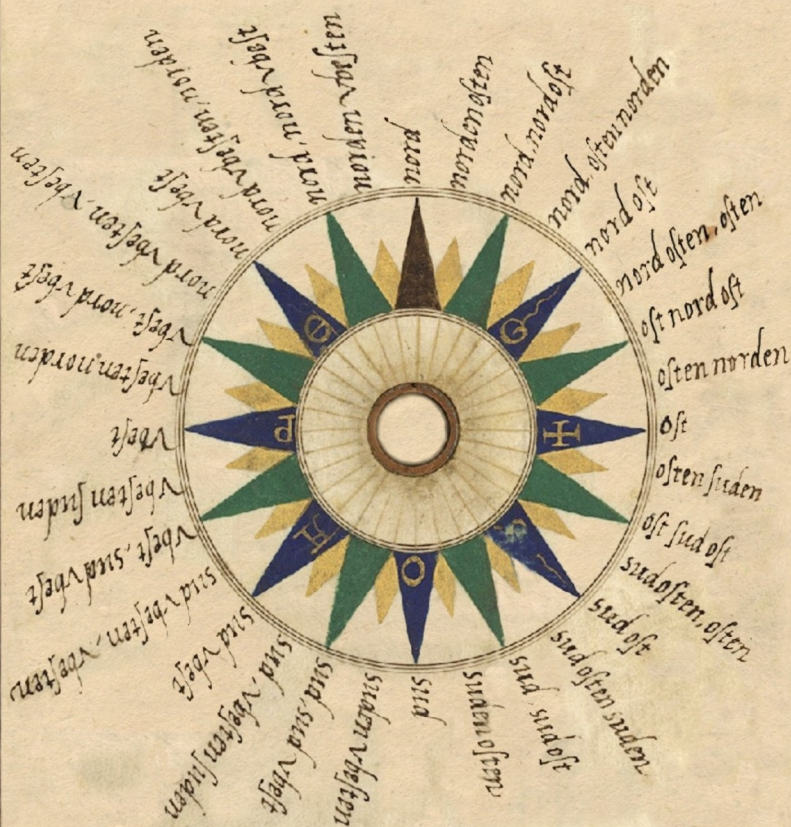 nord
norden oſten
nord, nord oſt
nord, oſten norden
nord oſt
nord oſten, oſten
oſt nord oſt
oſten norden
oſt
oſten ſuden
oſt ſud oſt
sud oſten, oſten
sud oſt
sud oſten suden
sud, sud oſt
suden oſten
sud
suden vbeſten
sud, sud vbeſt
sud, vbeſten ſuden
sud vbeſt
sud vbeſten, vbeſten
vbeſt, sud vbeſt
vbeſten ſuden
vbeſt
vbeſten, norden
vbeſt, nord vbeſt
nord vbeſten, vbeſten
nord vbeſt
nord vbeſten, norden
nord, nord vbeſt
norden vbeſten
G
S
O
A
P